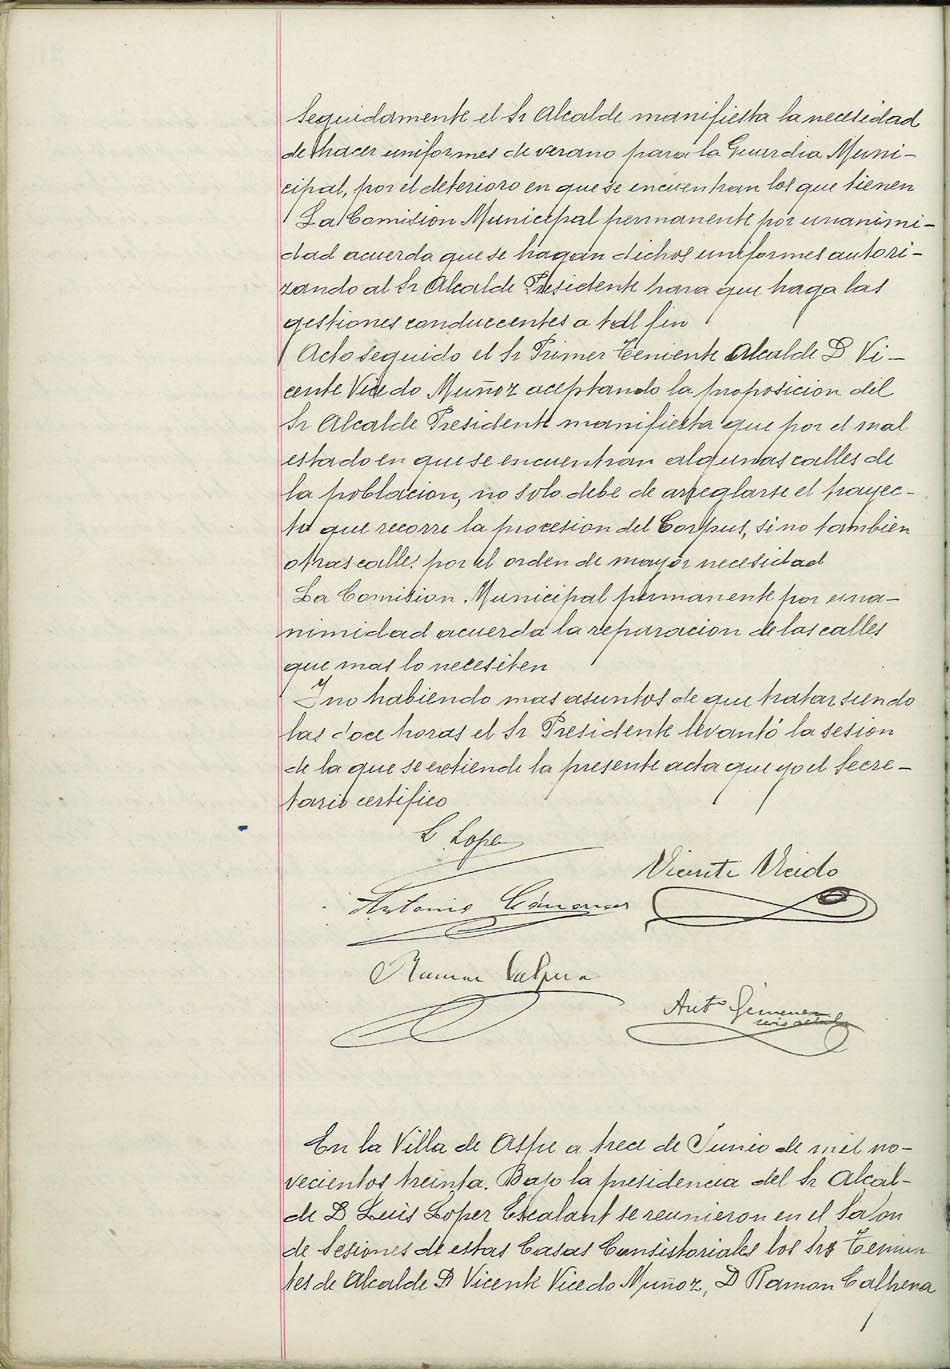 Seguidamente el Sr Alcalde manifiesta la necesidad
de hacer uniformes de verano para la Guardia Muni-
cipal, por el deterioro en que se encuentran los que tienen
La Comision Municipal permanente por unanimi-
dad acuerda que se hagan dichos uniformes autori-
zando al Sr Alcalde Presidente para que haga las
gestiones conducentes a tal fin
Acto seguido el Sr Primer Teniente Alcalde D Vi-
cente Vicedo Muñoz aceptando la proposicion del
Sr Alcalde Presidente manifiesta que por el mal
estado en que se encuentran algunas calles de
la poblacion, no solo debe de arreglarse el trayec-
to que recorre la procesion del Corpus, sino tambien
otras calles por el orden de mayor necesidad
La Comision Municipal permanente por una-
nimidad acuerda la reparacion de las calles
que mas lo necesiten
Y no habiendo mas asuntos de que tratar siendo
las doce horas el Sr Presidente levantó la sesion
de la que se extiende la presente acta que yo el Secre-
tario certifico
L. Lopez
Vicente Vicedo
Antonio
Ramon Calpena
Antº Gimenez
En la Villa de Aspe a trece de Junio de mil no-
vecientos treinta. Bajo la presidencia del Sr Alcal-
de D Luis Lopez Escalant se reunieron en el Salon
de Sesiones de estas Casas Consistoriales los Srs Tenien
tes de Alcalde D Vicente Vicedo Muñoz, D Ramon Calpena